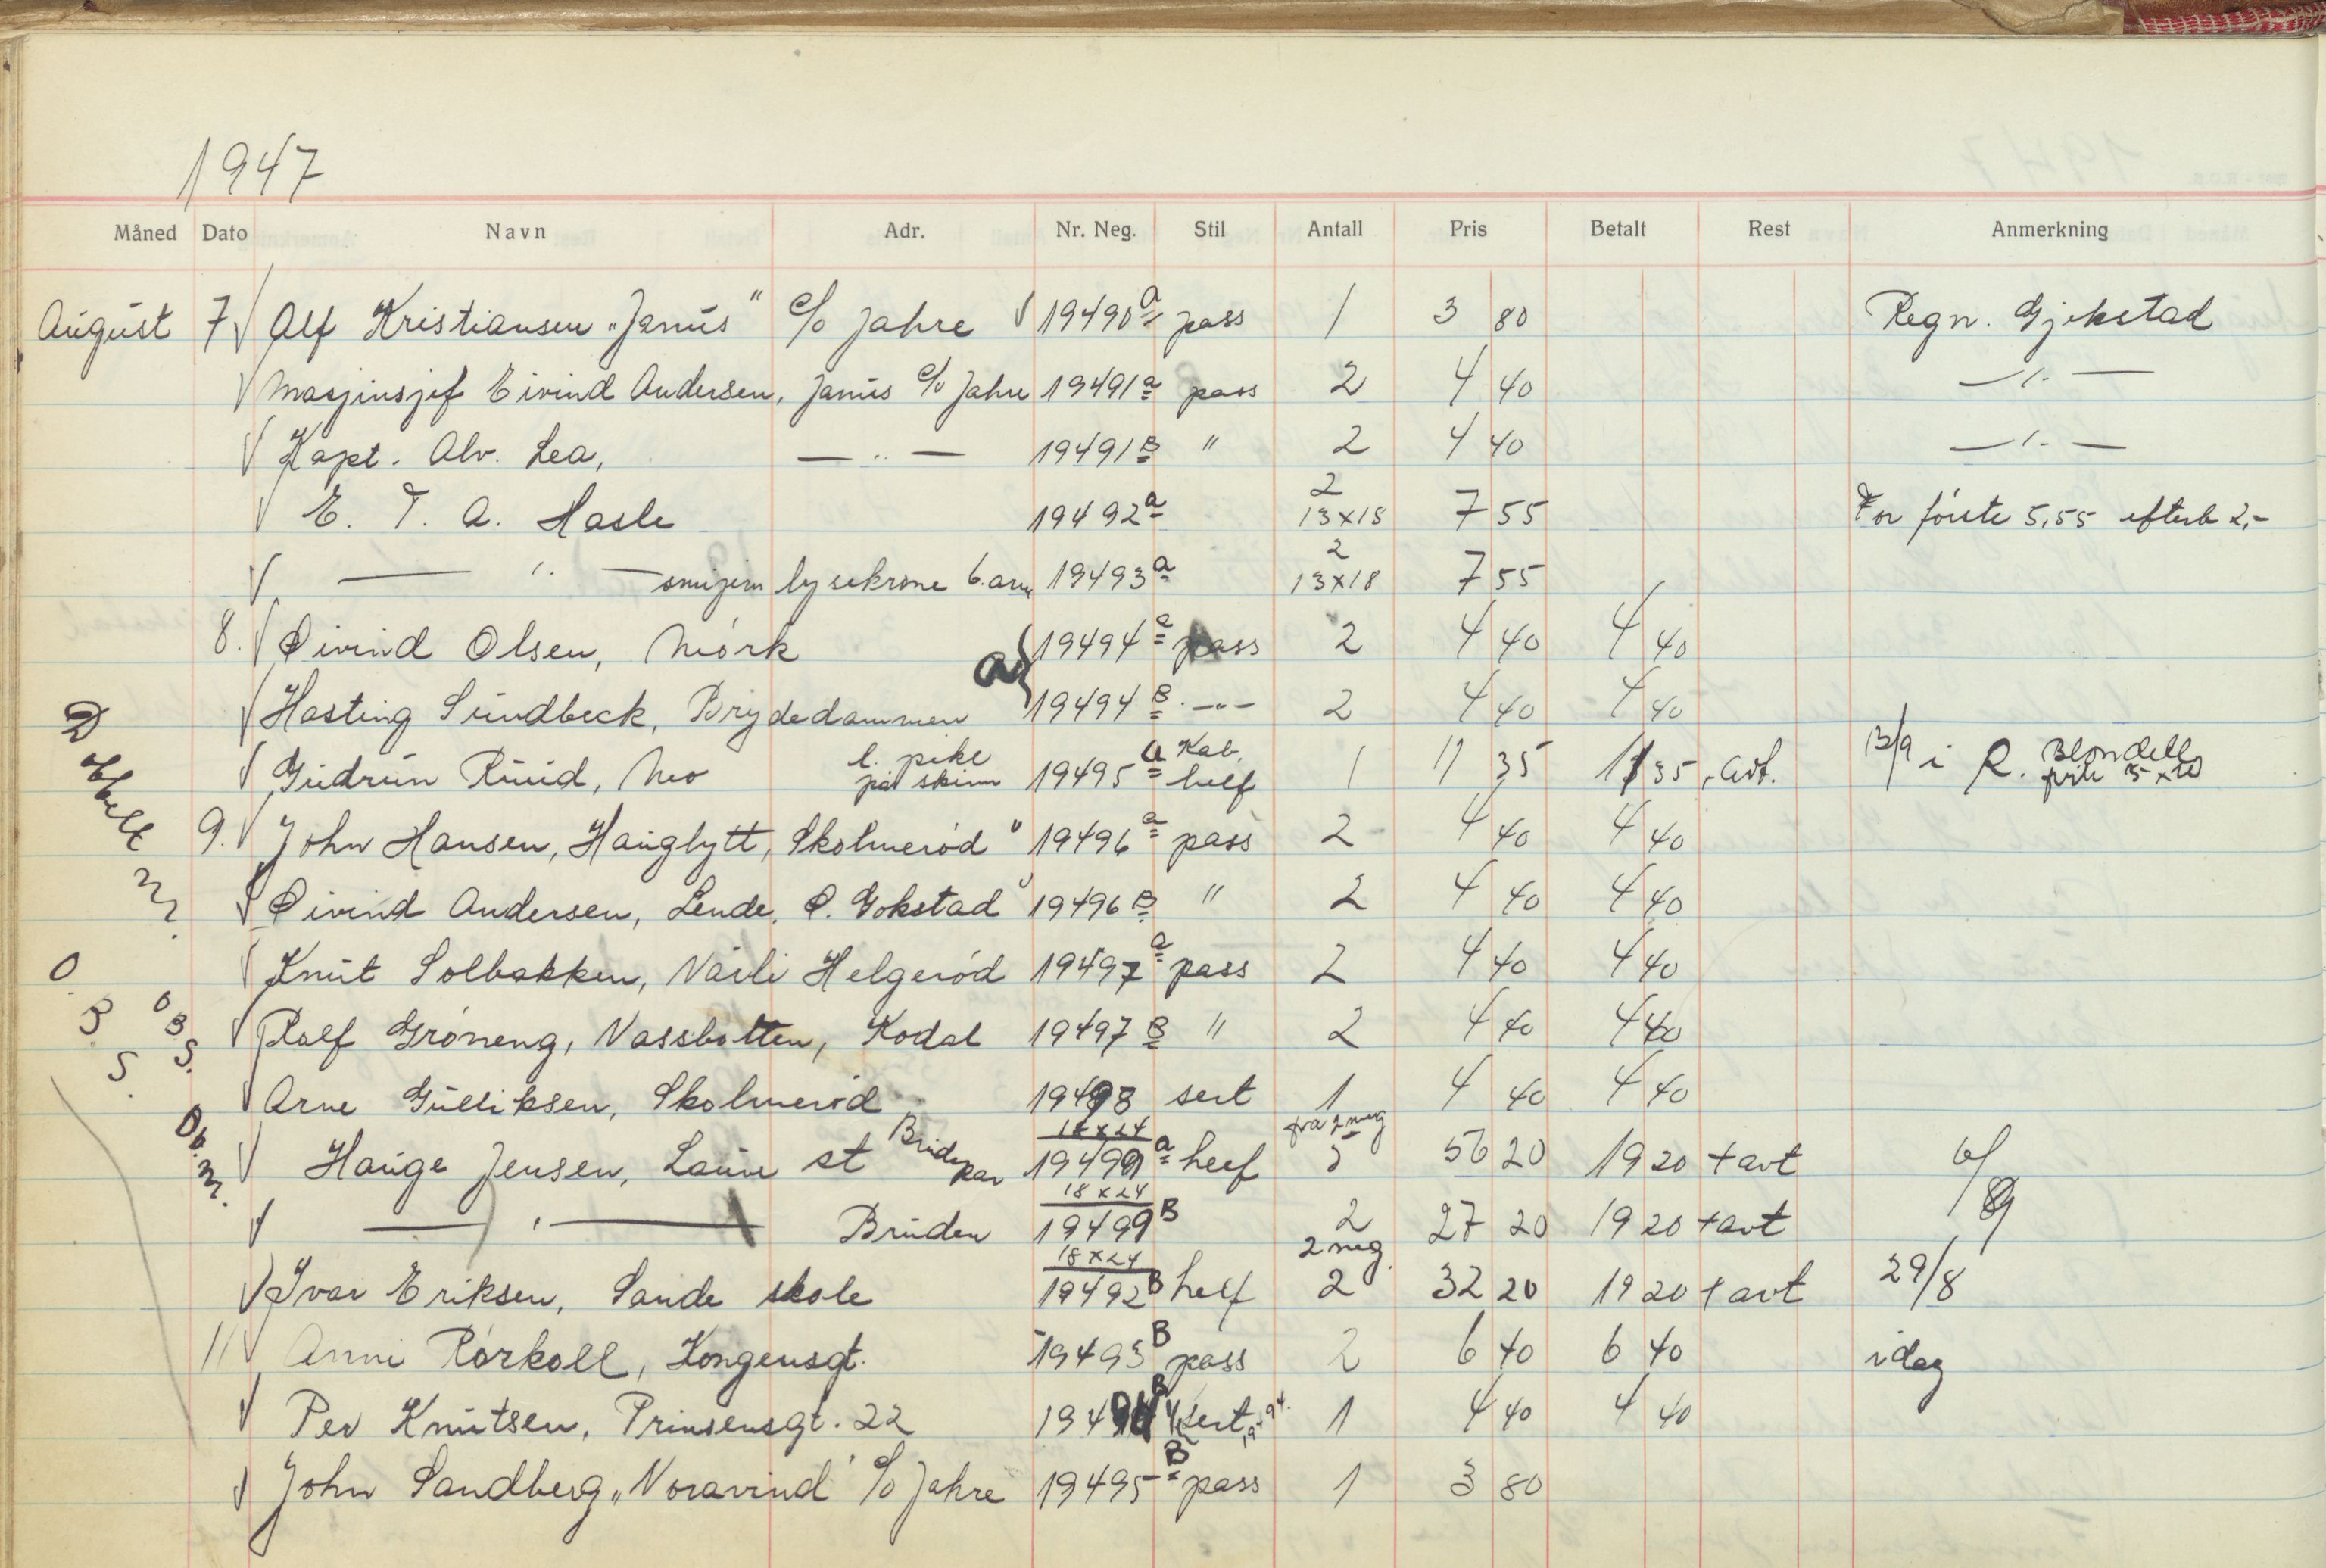 1947
Måned Dato Navn Adr. Nr. Neg. Stil Antall Pris Betalt Rest Anmerkning
August 7 Alf Kristiansen „Janus" c/o Jahre 19490a pass 1 3 80 Regn. Gjekstad
Masjinsjef Eivind Andersen, Janus c/o Jahre 19491a pass 2 4 40 — " —
Kapt. Alv. Lea, — " — 19491B " 2 4 40 — " —
E. T. A. Hasle 19492a 2 13x18 7 55 For første 5,55 efterb 2,-
— " — smijern lysekrone 6. arm 19493a 2 13x18 7 55
8. Øivind Olsen, Mørk 19494a pass 2 4 40 4 40
Hasting Sundbeck, Brydedammen 19494B — " — 2 4 40 4 40
Gudrun Ruud, Mo l. pike på skinn 19495a Kab. helf 1 11 35 11 35 , avt. 13/9 i R. Blondell 5x10
9. John Hansen, Hauglytt, Skolmerød 19496a pass 2 4 40 4 40
Øivind Andersen, Lende, Ø. Gokstad 19496B " 2 4 40 4 40
Knut Solbakken, Nærli Helgerød 19497a pass 2 4 40 4 40
Rolf Grøneng, Vassbotten, Kodal 19497B " 2 4 40 4 40
Arne Gulliksen, Skolmerød 19498 sert 1 4 40 4 40
Hauge Jensen, st Brudepar 18x24 19499a helf fra 2 neg 5 56 20 19 20 + avt 6/9
— " — Bruden 18x24 19499B 2 27 20 19 20 + avt
Ivar Eriksen, Sande skole 18x24 19492B helf 2 neg. 2 32 20 19 20 + avt 29/8
11 Anni Rørkoll, Kongensgt. 19493B pass 2 6 40 6 40 idag
Per Knutsen, Prinsensgt. 22 19494B sert 1 4 40 4 40
John Sandberg „Noravind" c/o Jahre 19495B pass 1 3 80
Dobbelt n.
O. B. S.
O B S.
Db. n.